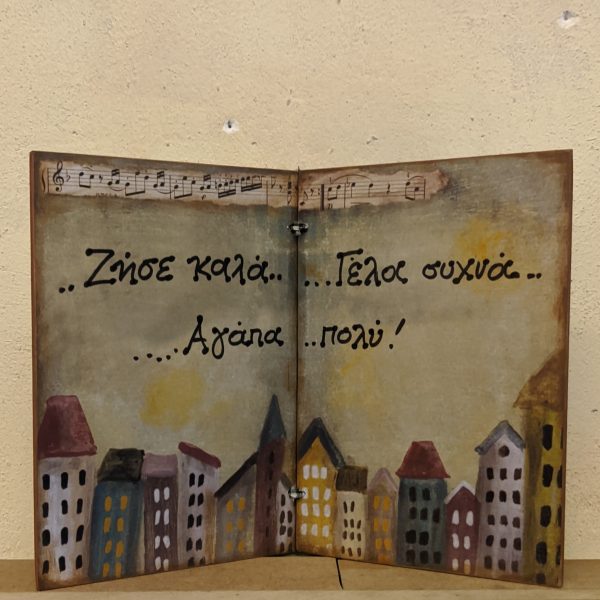 ..Ζήσε καλά.. ...Γέλα συχνά..
.....Αγάπα ..πολύ!